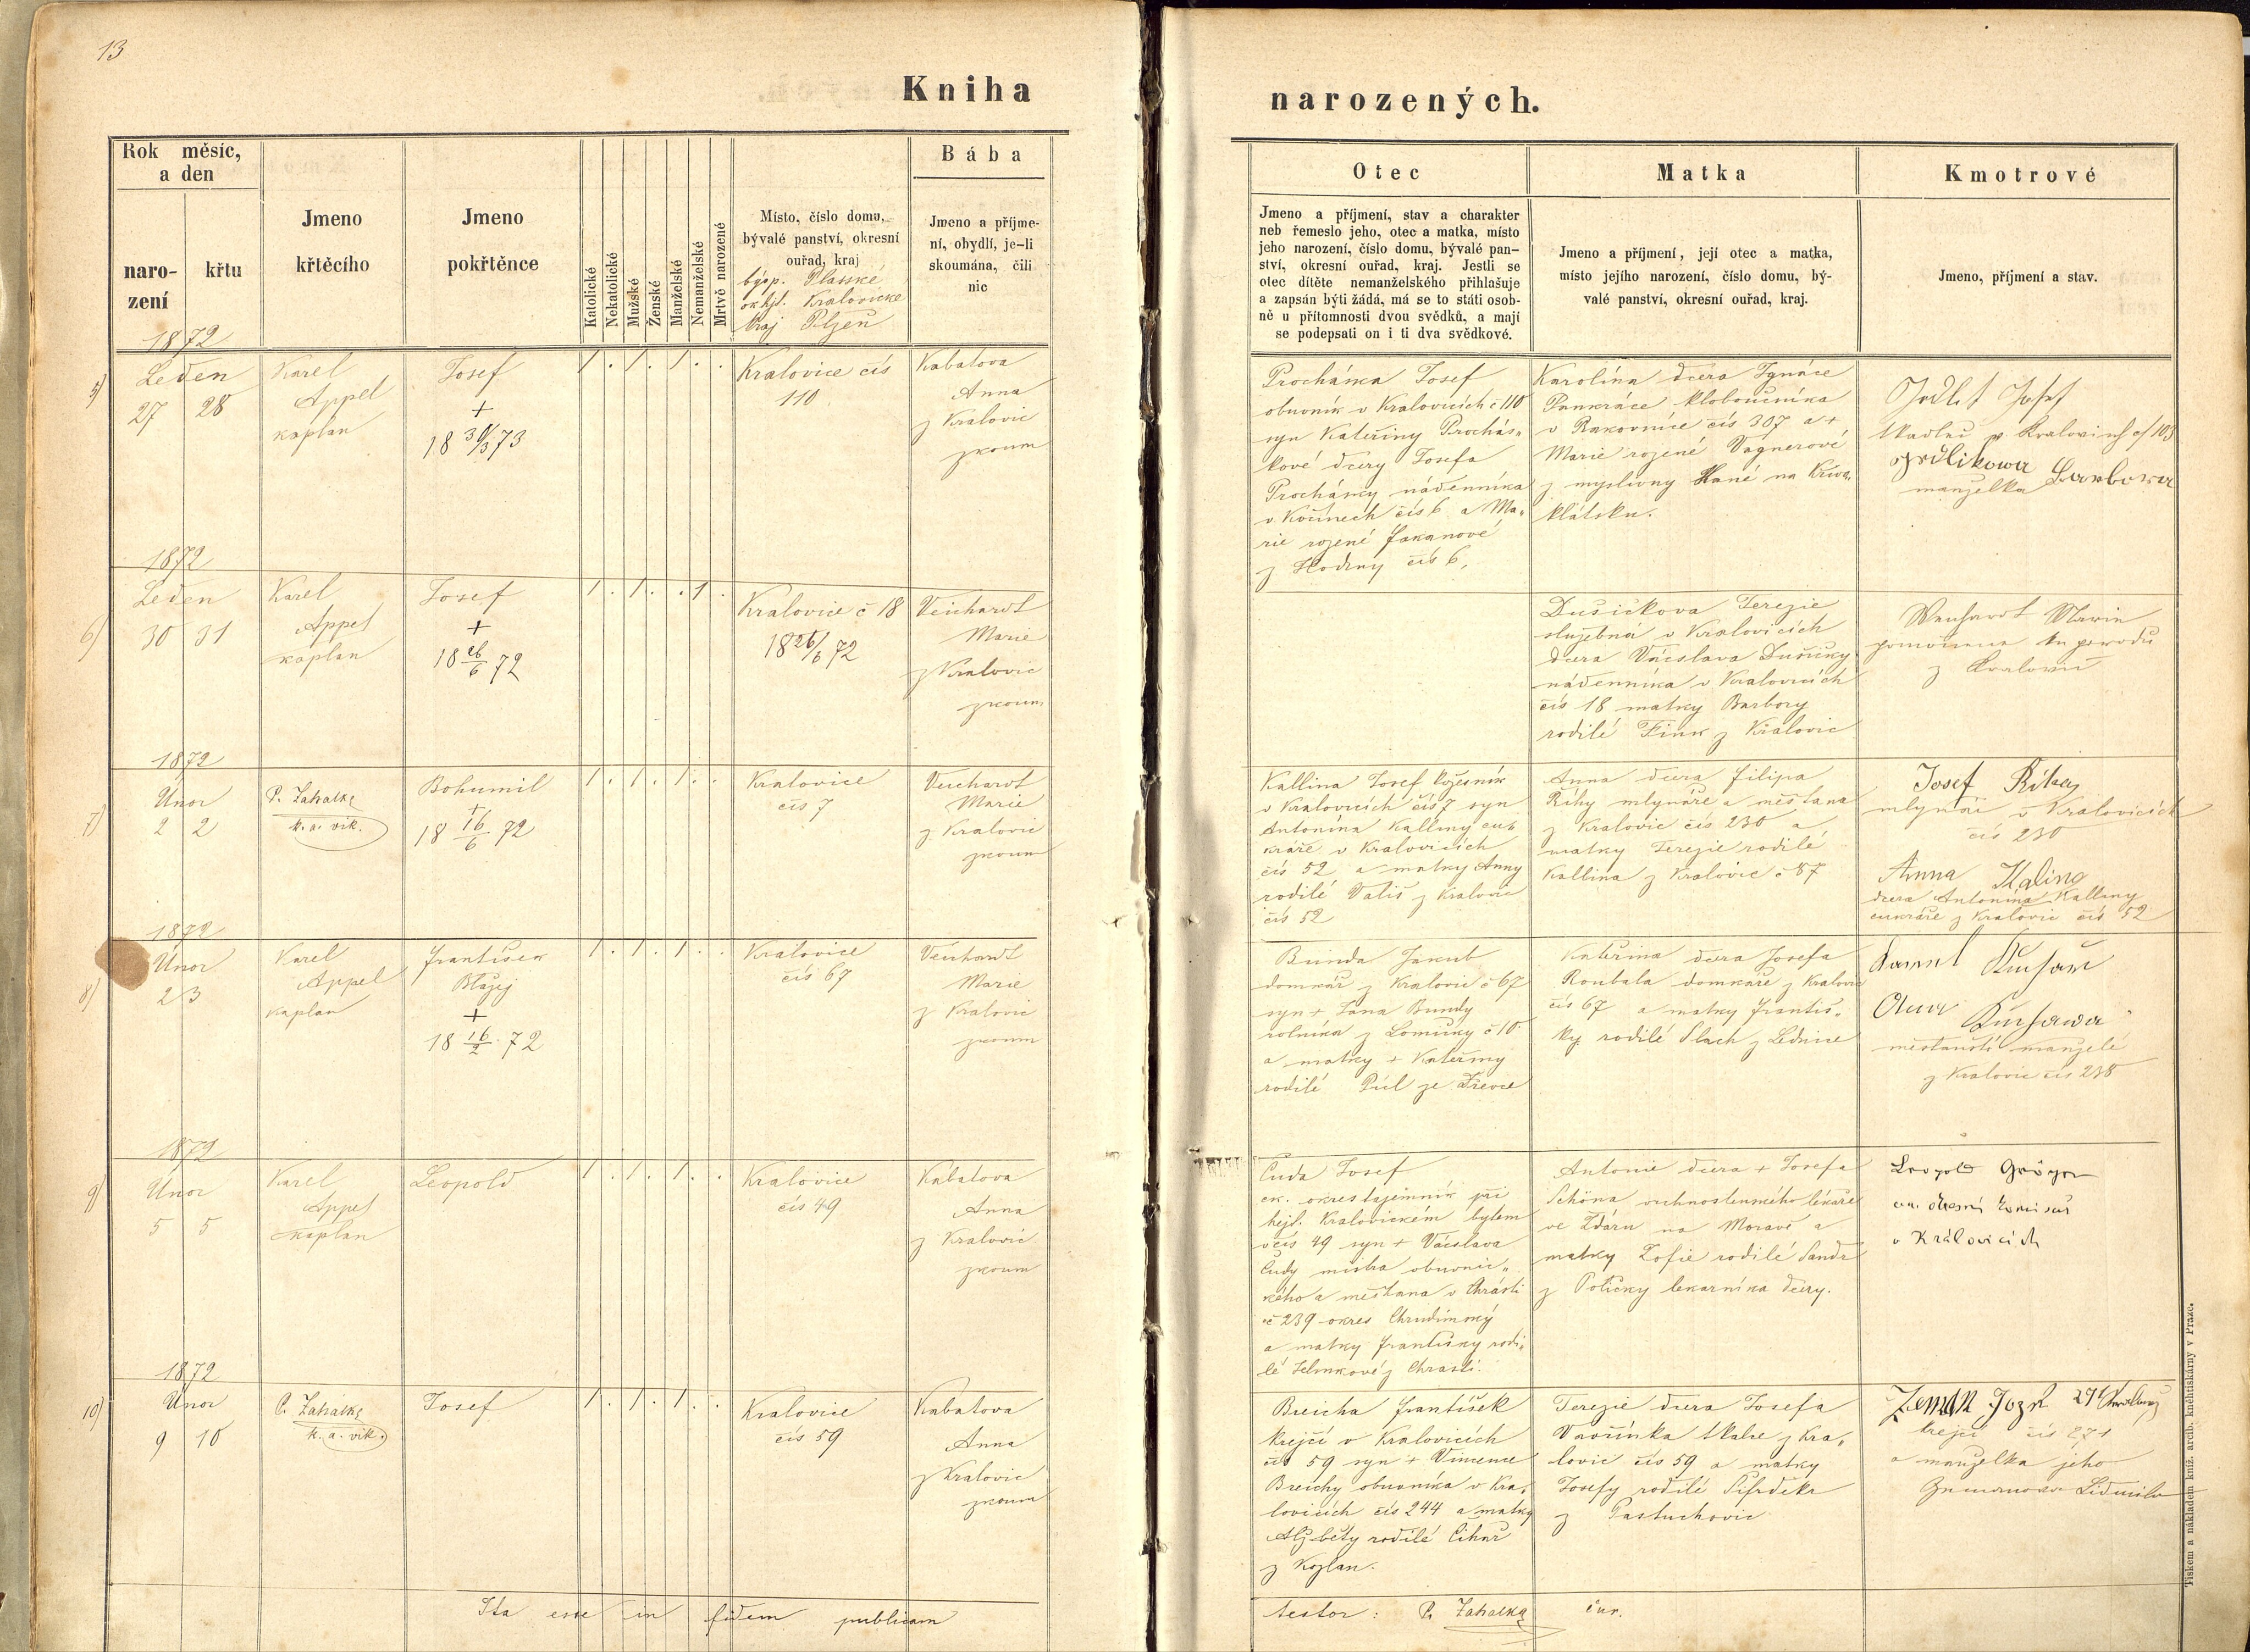 13
Kniha
narozených.
Rok měsíc,
a den
naro-
zení
křtu
Jmeno
křtěcího
Jmeno
pokřtěnce
Katolické
Nekatolické
Mužské
Ženské
Manželské
Nemanželské
Mrtvě narozené
Místo, číslo domu,
bývalé panství, okresní
ouřad, kraj
býv. Plasské
ok. hejt. Kralovické
kraj Plzeň
Bába
Jmeno a příjme-
ní, obydlí, je-li
skoumána, čili
nic
Otec
Jmeno a příjmení, stav a charakter
neb řemeslo jeho, otec a matka, místo
jeho narození, číslo domu, bývalé pan-
ství, okresní ouřad, kraj. Jestli se
otec dítěte nemanželského přihlašuje
a zapsán býti žádá, má se to státi osob-
ně u přítomnosti dvou svědků, a mají
se podepsati on i ti dva svědkové.
Matka
Jmeno a příjmení, její otec a matka,
místo jejího narození, číslo domu, bý-
valé panství, okresní ouřad, kraj.
Kmotrové
Jmeno, příjmení a stav.
1872
5)
Leden
27 28
Karel
Appel
kaplan
Josef
+
18 30/3 73
1 . 1 . 1 . .
Kralovice čís
110
Kabatova
Anna
z Kralovic
zkoum
Procháska Josef
obuvník v Kralovicích č 110
syn Kateřiny Prochás„
kové dcery Josefa
Procházky nádenníka
v Kočínech čís 6 a Ma„
rie rozené
z Hodiny čís 6,
Karolína dcera Ignáce
Pankráce kloboučníka
v Rakovníce čís 307 a +
Marie rozené Vagnerové
z myslivny Hané na Křivo„
klátsku.
Josef
v Kralovicích č/103
manželka
1872
6)
Leden
30 31
Karel
Appel
kaplan
Josef
+
18 26/6 72
1 . 1 . . 1 .
Kralovice č 18
18 26/6 72
Veichardt
Marie
z Kralovic
zkoum
Dusičkova Terezie
služebná v Kralovicích
dcera Václava Dusičky
nádenníka v Kralovicích
čís 18 matky Barbory
rodilé Fink z Kralovic
Marie
z Kralovic
1872
7)
Unor
2 2
P. Zahalka
k. a. vik.
Bohumil
+
18 16/6 72
1 . 1 . 1 . .
Kralovice
čís 7
Veichardt
Marie
z Kralovic
zkoum
Kallina Josef kožešník
v Kralovicích čís 7 syn
Antonína Kalliny cuk
kráře v Kralovicích
čís 52 a matky Anny
rodilé Vališ z Kralovic
čís 52
Anna dcera Filipa
Říhy mlynáře a měšťana
z Kralovic čís 230 a
matky Terezie rodilé
Kallina z Kralovic č 87
Josef Říha
mlynář v Kralovicích
čís 230
Anna Kalina
dcera Antonína Kalliny
cukráře z Kralovic čís 52
1872
8)
Unor
2 3
Karel
Appel
kaplan
František
Blažej
+
18 16/2 72
1 . 1 . 1 . .
Kralovice
čís 67
Veichardt
Marie
z Kralovic
zkoum
Bunda Jakub
domkář z Kralovic č 67
syn + Jana Bundy
rolníka z Lomničky č 10
a matky + Kateřiny
rodilé ze Žrevce
Kateřina dcera Josefa
Roubala domkáře z Kralovic
čís 67 a matky Františ„
ky rodilé Slach z Lednice
měšťanští manželé
z Kralovic čís 238
1872
9)
Unor
5 5
Karel
Appel
kaplan
Leopold
1 . 1 . 1 . .
Kralovice
čís 49
Kabatova
Anna
z Kralovic
zkoum
Čuda Josef
ck. okres tajemník při
hejt. Kralovickém bytem
v čís 49 syn + Václava
Čudy mistra obuvnic„
kého a měšťana v Chrásti
č 239 okres Chrudimský
a matky Františky rodi„
lé z Chrasti.
Antonie dcera + Josefa
Schöna vrchnostenského lékaře
ve Ždáru na Moravě a
matky Žofie rodilé
z Poličky lekarníka dcery.
Leopold
c.k. okresní komisař
v Královicích
1872
10)
Unor
9 10
P. Zahalka
k. a. vik.
Josef
1 . 1 . 1 . .
Kralovice
čís 59
Kabatova
Anna
z Kralovic
zkoum
Breicha František
krejčí v Kralovicích
čís 59 syn + Vincence
Breichy obuvníka v Kra„
lovicích čís 244 a matky
Alžběty rodilé Cihař
z Kozlan.
Terezie dcera Josefa
Vavřinka tkalce z Kra„
lovic čís 59 a matky
Josefy rodilé
z Pastuchovic
Zeman Jozef 271
krejčí čís 271
a manželka jeho
Zemanova Lidmila
Ita esse in fidem publicam
testor: P. Zahalka cur.
Tiskem a nákladem kníž. arcib. kněhtiskárny v Praze.